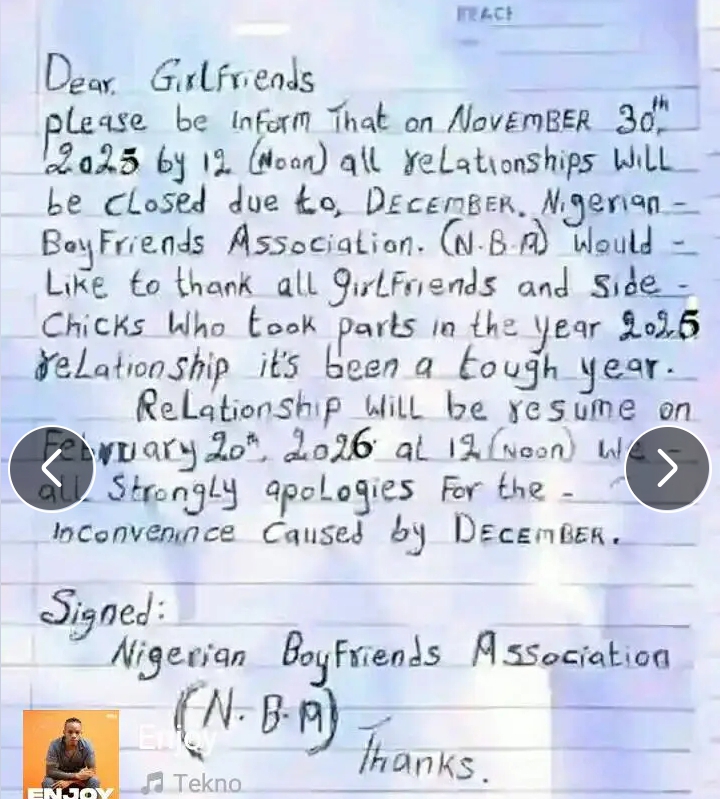 PEACE
Dear. Girlfriends
please be inform That on NOVEMBER 30th,
2025 by 12 (Noon) all relationships Will
be closed due to, DECEMBER. Nigerian -
BoyFriends Association. (N.B.A) Would -
Like to thank all girlfriends and side -
Chicks Who took parts in the year 2025
relationship it's been a tough year.
Relationship will be resume on
February 20th, 2026 at 12 (Noon) We -
all Strongly apologies For the -
Inconvenince Caused by DECEMBER.
Signed:
Nigerian BoyFriends Association
(N.B.A)
Thanks.
Enjoy
Tekno
ENJOY